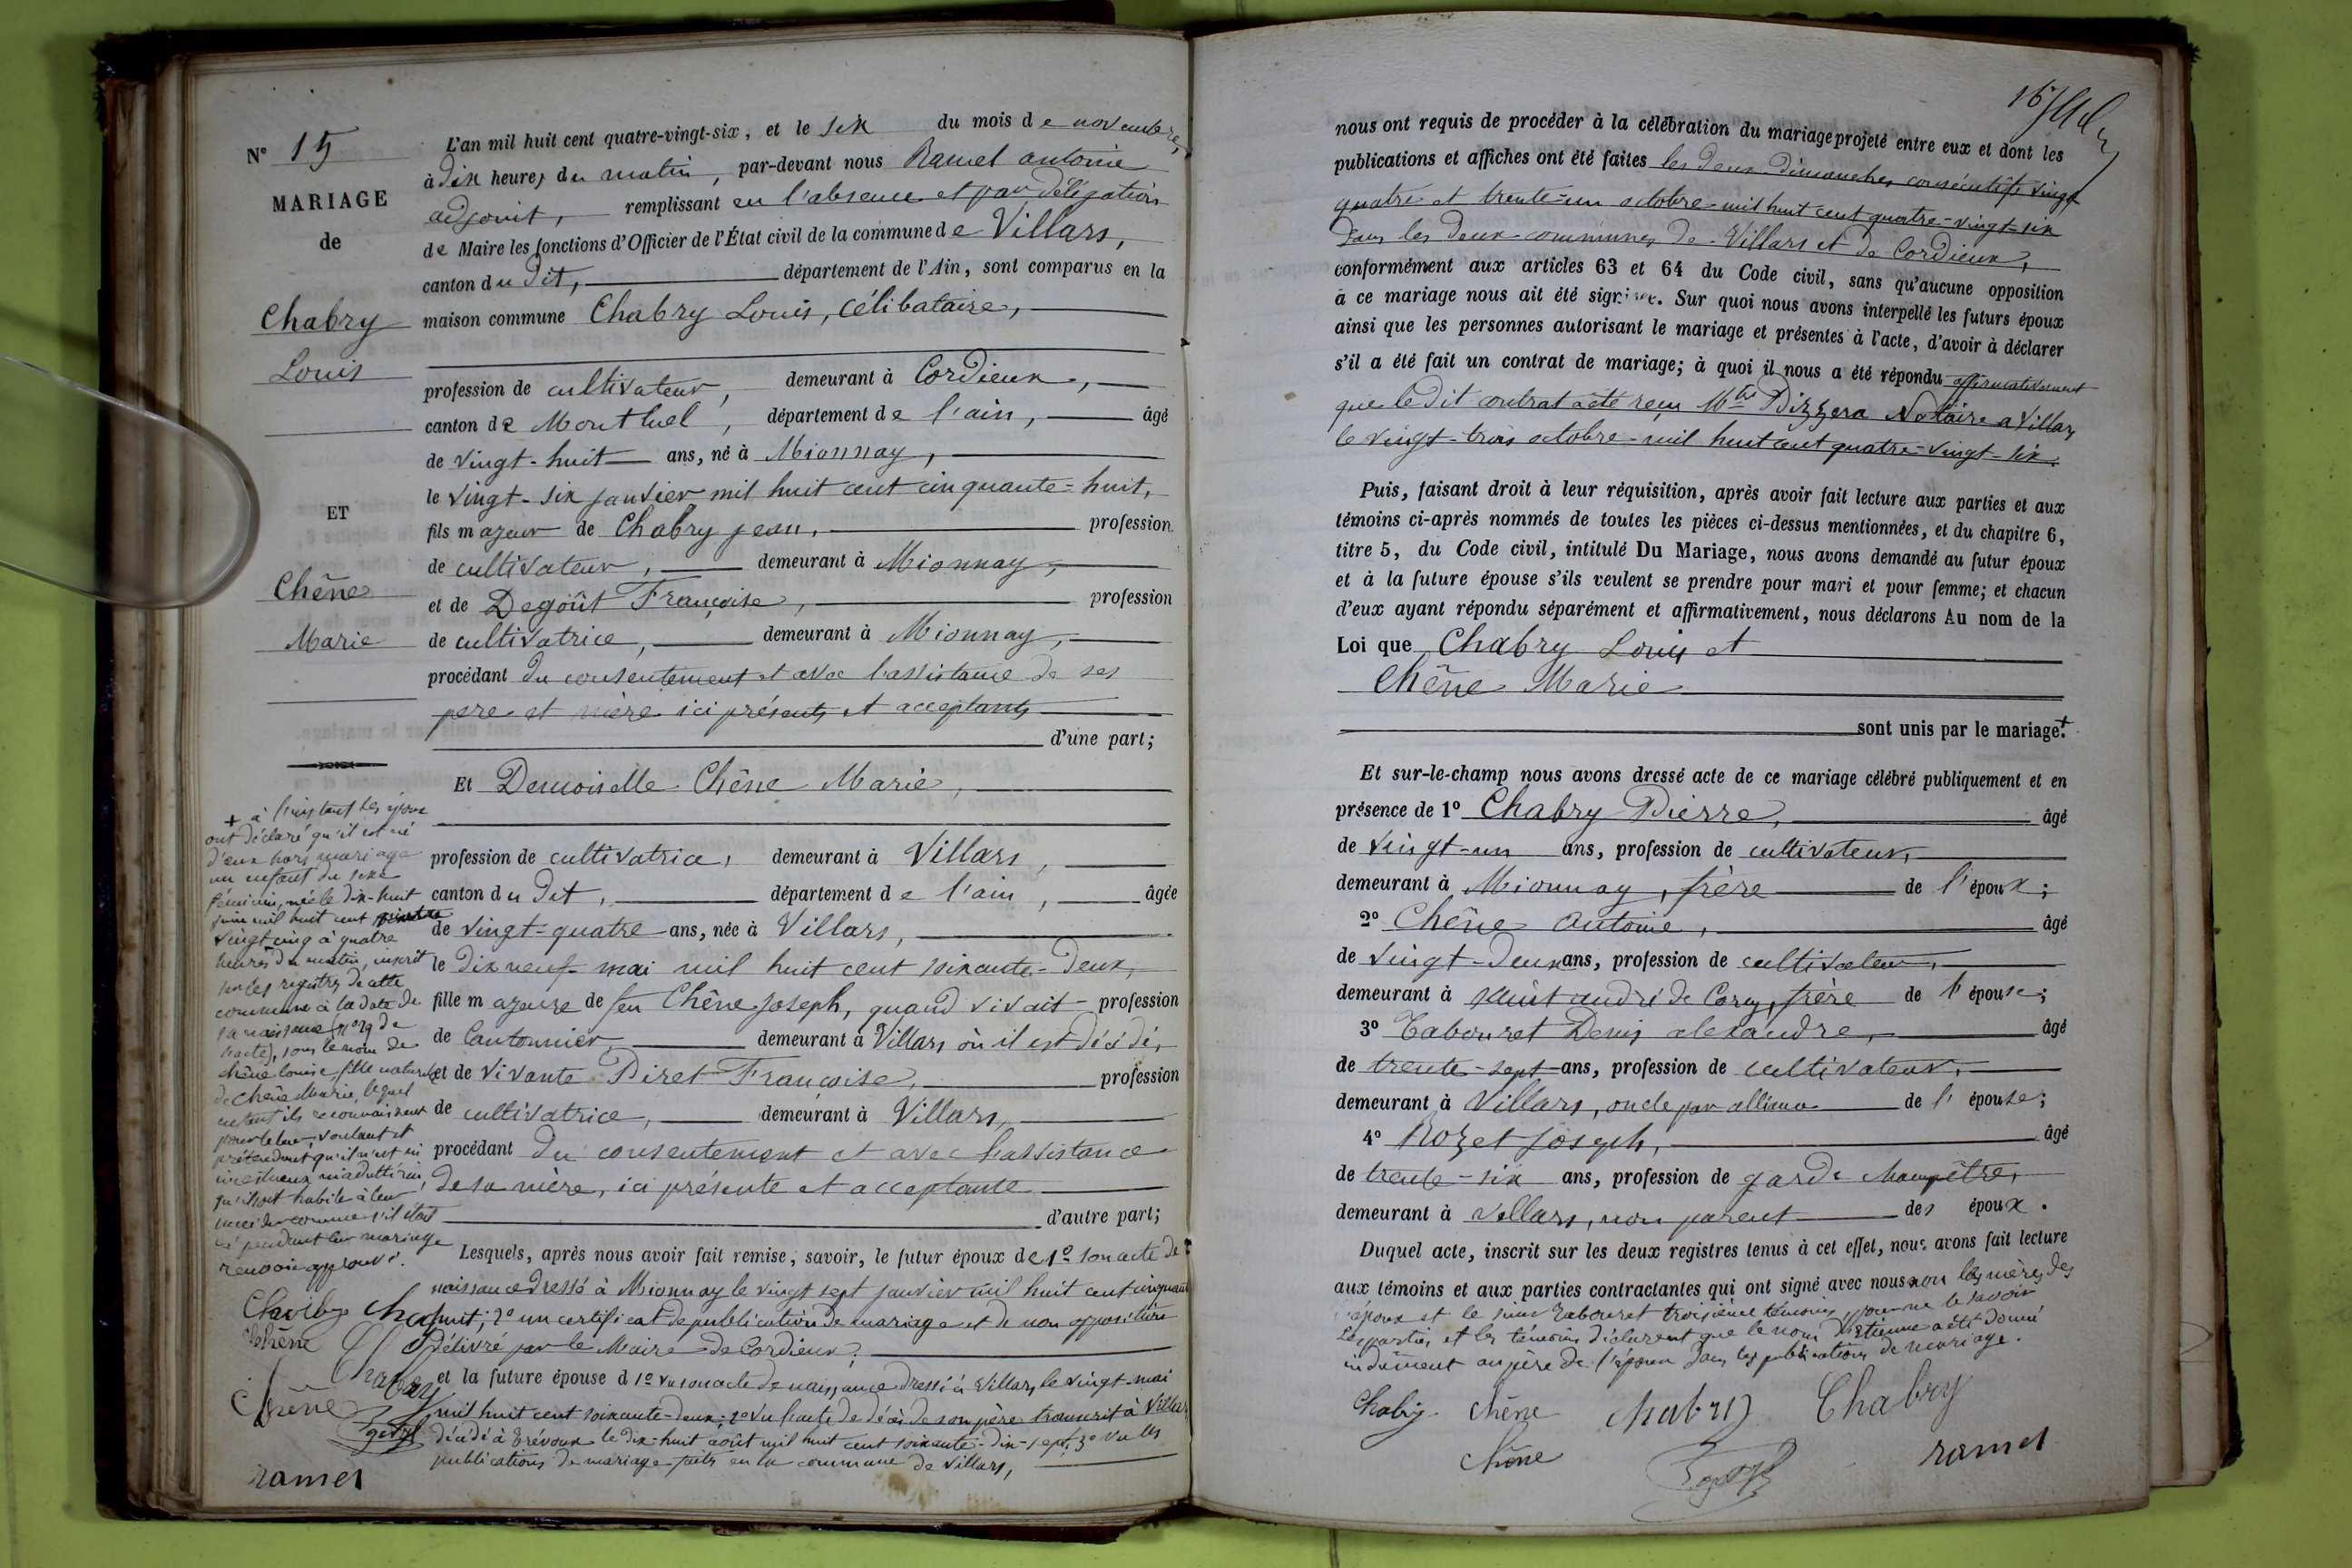 N° 15
MARIAGE
de
Chabry
Louis
ET
Chêne
Marie
L'an mil huit cent quatre-vingt-six, et le six du mois de novembre,
à dix heures du matin, par-devant nous Ramel antoine
adjoint, remplissant en l'absence et par délégation
de Maire les fonctions d'Officier de l'État civil de la commune de Villars,
canton du dit, département de l'Ain, sont comparus en la
maison commune Chabry Louis, célibataire,
profession de cultivateur, demeurant à Cordieux,
canton de Montluel, département de l'ain, âgé
de vingt-huit ans, né à Mionnay,
le vingt-six janvier mil huit cent cinquante-huit,
fils majeur de Chabry jean, profession
de cultivateur, demeurant à Mionnay,
et de Degoût Françoise, profession
de cultivatrice, demeurant à Mionnay,
procédant du consentement et avec l'assistance de ses
père et mère ici présents et acceptants
d'une part;
Et Demoiselle Chêne Marie,
profession de cultivatrice, demeurant à Villars,
canton du dit, département de l'ain, âgée
de vingt-quatre ans, née à Villars,
le dix neuf mai mil huit cent soixante-deux,
fille majeure de feu Chêne Joseph, quand vivait profession
de Cantonnier, demeurant à Villars où il est décédé,
et de vivante Piret Françoise, profession
de cultivatrice, demeurant à Villars,
procédant du consentement et avec l'assistance
de sa mère, ici présente et acceptante
d'autre part;
Lesquels, après nous avoir fait remise, savoir, le futur époux de 1° son acte de
naissance dressé à Mionnay le vingt sept janvier mil huit cent cinquante
huit; 2° un certificat de publication de mariage et de non opposition
délivré par le Maire de Cordieux;
et la future épouse d 1° vu son acte de naissance dressé à Villars le vingt mai
mil huit cent soixante-deux; 2° vu l'acte de décès de son père transcrit à Villars
décédé à Trévoux le dix-huit août mil huit cent soixante-dix-sept; 3° vu les
publications de mariage faites en la commune de Villars,
+ à l'instant les époux
ont déclaré qu'il est né
d'eux hors mariage
un enfant du sexe
féminin, né le dix-huit
juin mil huit cent quatre
vingt-cinq à quatre
heures du matin, inscrit
sur les registres de cette
commune à la date de
sa naissance (n° 29 de
l'acte), sous le nom de
chêne louise fille naturelle
de chêne Marie, lequel
enfant ils reconnaissent
pour le leur, voulant et
prétendant qu'il n'est ni
incestueux ni adultérin,
qu'il soit habile à leur
succéder comme s'il était
né pendant leur mariage
renvoi approuvé.
Chabry Chabry
Chêne Chabry
Chêne
ramel
nous ont requis de procéder à la célébration du mariage projeté entre eux et dont les
publications et affiches ont été faites les deux dimanches consécutifs vingt
quatre et trente-un octobre mil huit cent quatre-vingt-six
dans les deux communes de Villars et de Cordieux,
conformément aux articles 63 et 64 du Code civil, sans qu'aucune opposition
à ce mariage nous ait été signifiée. Sur quoi nous avons interpellé les futurs époux
ainsi que les personnes autorisant le mariage et présentes à l'acte, d'avoir à déclarer
s'il a été fait un contrat de mariage; à quoi il nous a été répondu affirmativement
que le dit contrat a été reçu Mtre Pizzera Notaire a Villars
le vingt-trois octobre mil huit cent quatre-vingt-six.
Puis, faisant droit à leur réquisition, après avoir fait lecture aux parties et aux
témoins ci-après nommés de toutes les pièces ci-dessus mentionnées, et du chapitre 6,
titre 5, du Code civil, intitulé Du Mariage, nous avons demandé au futur époux
et à la future épouse s'ils veulent se prendre pour mari et pour femme; et chacun
d'eux ayant répondu séparément et affirmativement, nous déclarons Au nom de la
Loi que Chabry Louis et
Chêne Marie
sont unis par le mariage.+
Et sur-le-champ nous avons dressé acte de ce mariage célébré publiquement et en
présence de 1° Chabry Pierre, âgé
de vingt-un ans, profession de cultivateur,
demeurant à Mionnay, frère de l'époux;
2° Chêne Antoine, âgé
de vingt-deux ans, profession de cultivateur,
demeurant à saint andré de Corcy, frère de l'épouse;
3° Tabouret Denis alexandre, âgé
de trente-sept ans, profession de cultivateur,
demeurant à Villars, oncle par alliance de l'épouse;
4° Rozet Joseph, âgé
de trente-six ans, profession de garde champêtre,
demeurant à Villars, non parent des époux.
Duquel acte, inscrit sur les deux registres tenus à cet effet, nous avons fait lecture
aux témoins et aux parties contractantes qui ont signé avec nous non les mères des
époux et le sieur Tabouret troisième témoin, pour ne le savoir
Les parties et les témoins déclarent que le nom d'Etienne a été donné
indûment au père de l'épouse dans les publications de mariage.
Chabry Chêne Chabry Chabry
Chêne ramel